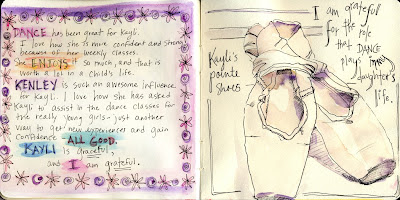 DANCE has been great for Kayli.
I love how she is more confident and strong
because of her weekly classes.
She ENJOYS it so much, and that is
worth a lot in a child's life.
KENLEY is such an awesome influence
for Kayli. I love how she has asked
Kayli to assist in the dance classes for
the really young girls - just another
way to get new experiences and gain
confidence. ALL GOOD.
KAYLI is graceful.
and I am grateful.
Kayli's
pointe
shoes
I am grateful
for the role
that DANCE
plays in my
daughter's
life.